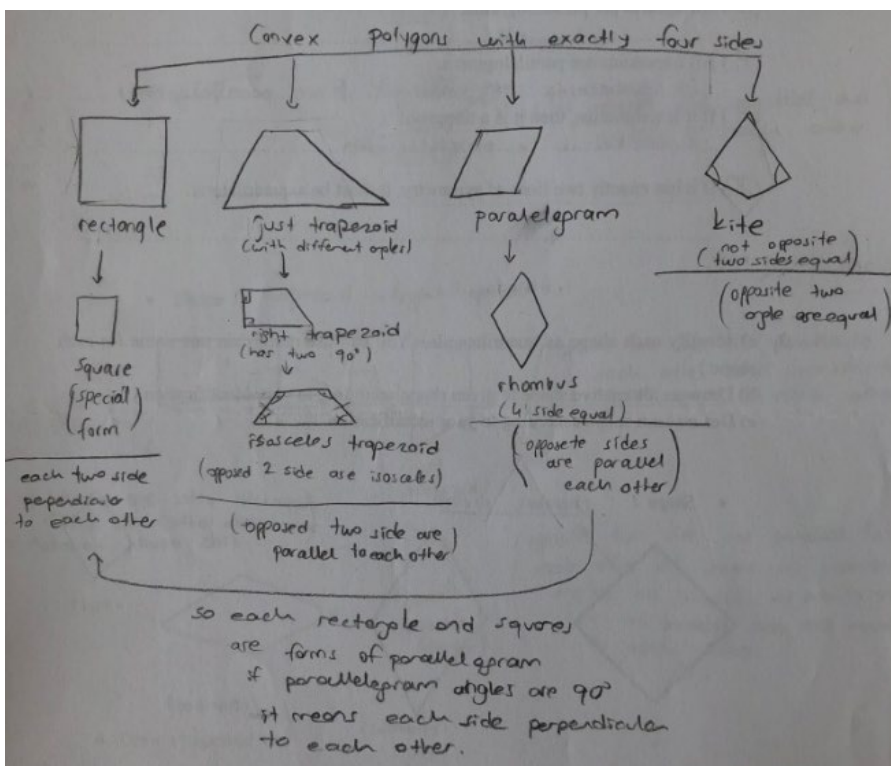 Convex polygons with exactly four sides
rectangle
Square
(special
form)
each two side
pependicular
to each other
just trapezoid
(with different angles)
right trapezoid
(has two 90°)
isosceles trapezoid
(opposed 2 side are isoscales)
(opposed two side are
parallel to each other)
parallelegram
rhombus
(4 side equal)
(opposete sides
are parallel
each other)
kite
(not opposite
two sides equal)
(opposite two
angle are equal)
so each rectangle and squares
are forms of parallelgram
if parallelegram angles are 90°
it means each side perpendicular
to each other.